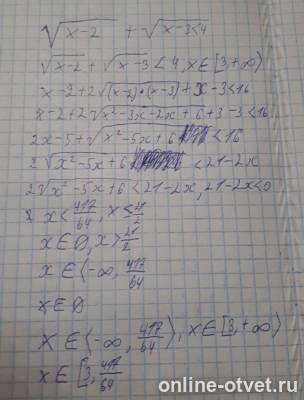 √x-2 + √x-3<4
√x-2 + √x-3 < 4, x∈[3,+∞)
x-2+2√(x-2)·(x-3) + x-3<16
x-2+2√x²-3x-2x+6 + 3-3<16
2x-5+√x²-5x+6 <16
2√x²-5x+6 <21-2x
2√x²-5x+6<21-2x, 21-2x<0
x<417/64, x≤21/2
x∈∅, x>21/2
x∈(-∞, 417/64
x∈∅
x∈(-∞, 417/64), x∈[3,+∞)
x∈[3, 417/64
online-otvet.ru